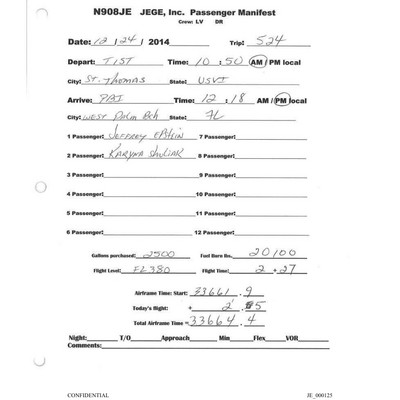 N908JE JEGE, Inc. Passenger Manifest
Crew: LV DR
Date: 12 / 24 / 2014 Trip: 524
Depart: TIST Time: 10 : 50 AM / PM local
City: ST. THOMAS State: USVI
Arrive: PBI Time: 12 : 18 AM / PM local
City: WEST Palm Bch State: FL
1 Passenger: JEFFREY EPSTEIN 7 Passenger:
2 Passenger: KARYNA SHULIAK 8 Passenger:
3 Passenger: 9 Passenger:
4 Passenger: 10 Passenger:
5 Passenger: 11 Passenger:
6 Passenger: 12 Passenger:
Gallons purchased: 2500 Fuel Burn lbs. 20100
Flight Level: FL380 Flight Time: 2 + 27
Airframe Time: Start: 33661 . 9
Today's flight: + 2 . 5
Total Airframe Time = 33664 . 4
Night: T/O Approach Min Flex VOR
Comments:
CONFIDENTIAL JE_000125